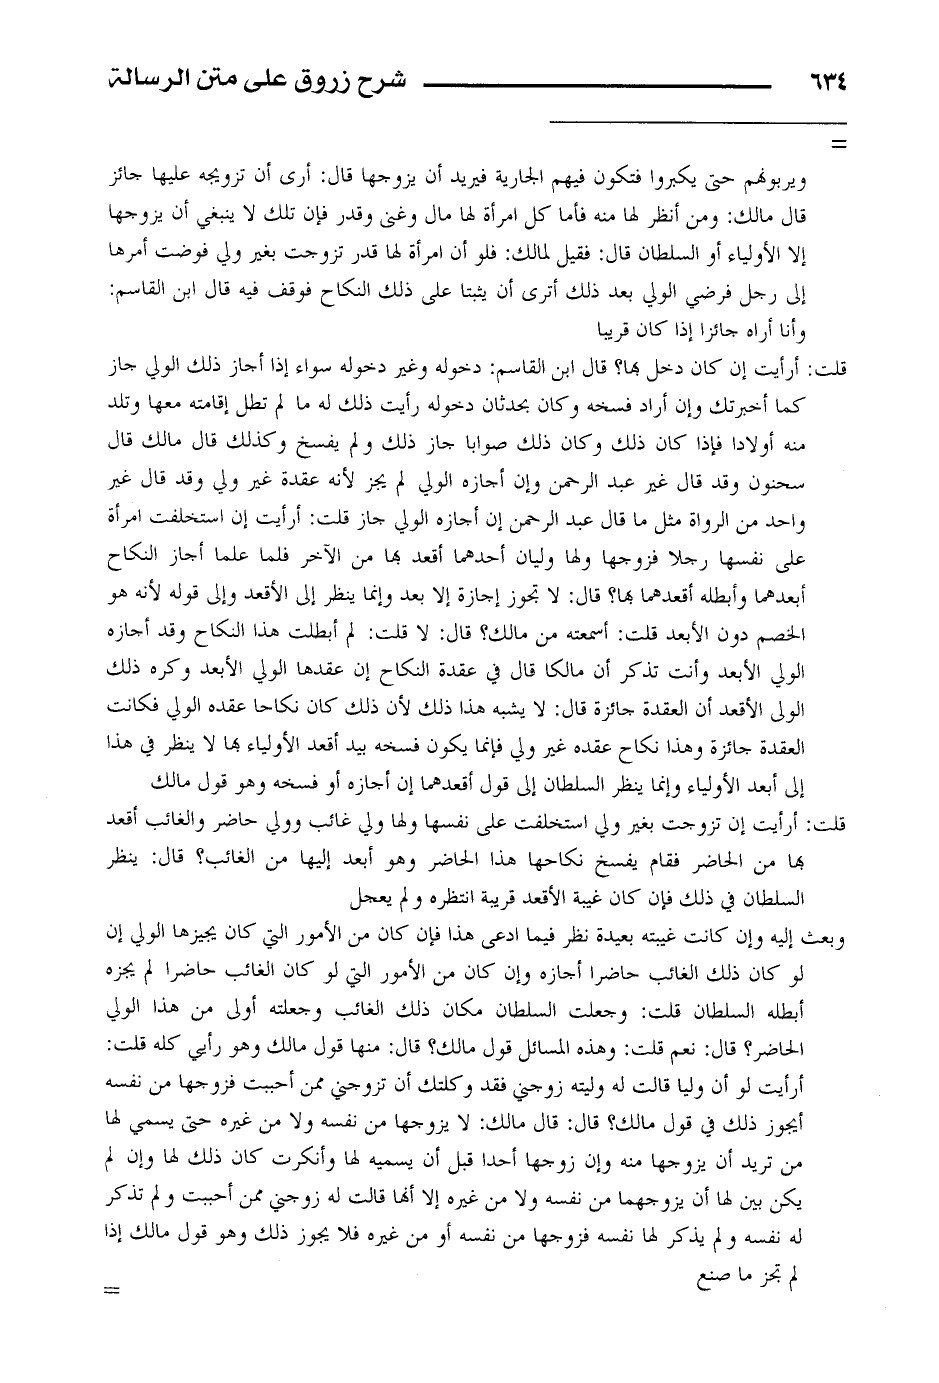 ٦٣٤ شرح زروق على متن الرسالة
=
ويربونهم حتى يكبروا فتكون فيهم الجارية فيريد أن يزوجها قال: أرى أن تزويجه عليها جائز
قال مالك: ومن أنظر لها منه فأما كل امرأة لها مال وغنى وقدر فإن تلك لا ينبغي أن يزوجها
إلا الأولياء أو السلطان قال: فقيل لمالك: فلو أن امرأة لها قدر تزوجت بغير ولي فوضت أمرها
إلى رجل فرضي الولي بعد ذلك أترى أن يثبتا على ذلك النكاح فوقف فيه قال ابن القاسم:
وأنا أراه جائزا إذا كان قريبا
قلت: أرأيت إن كان دخل بها؟ قال ابن القاسم: دخوله وغير دخوله سواء إذا أجاز ذلك الولي جاز
كما أخبرتك وإن أراد فسخه وكان بحدثان دخوله رأيت ذلك له ما لم تطل إقامته معها وتلد
منه أولادا فإذا كان ذلك وكان ذلك صوابا جاز ذلك ولم يفسخ وكذلك قال مالك قال
سحنون وقد قال غير عبد الرحمن وإن أجازه الولي لم يجز لأنه عقدة غير ولي وقد قال غير
واحد من الرواة مثل ما قال عبد الرحمن إن أجازه الولي جاز قلت: أرأيت إن استخلفت امرأة
على نفسها رجلا فزوجها ولها وليان أحدهما أقعد بها من الآخر فلما علما أجاز النكاح
أبعدهما وأبطله أقعدهما بها؟ قال: لا تجوز إجازة إلا بعد وإنما ينظر إلى الأقعد وإلى قوله لأنه هو
الخصم دون الأبعد قلت: أسمعته من مالك؟ قال: لا قلت: لم أبطلت هذا النكاح وقد أجازه
الولي الأبعد وأنت تذكر أن مالكا قال في عقدة النكاح إن عقدها الولي الأبعد وكره ذلك
الولى الأقعد أن العقدة جائزة قال: لا يشبه هذا ذلك لأن ذلك كان نكاحا عقده الولي فكانت
العقدة جائزة وهذا نكاح عقده غير ولي فإنما يكون فسخه بيد أقعد الأولياء بها لا ينظر في هذا
إلى أبعد الأولياء وإنما ينظر السلطان إلى قول أقعدهما إن أجازه أو فسخه وهو قول مالك
قلت: أرأيت إن تزوجت بغير ولي استخلفت على نفسها ولها ولي غائب وولي حاضر والغائب أقعد
بها من الحاضر فقام يفسخ نكاحها هذا الحاضر وهو أبعد إليها من الغائب؟ قال: ينظر
السلطان في ذلك فإن كان غيبة الأقعد قريبة انتظره ولم يعجل
وبعث إليه وإن كانت غيبته بعيدة نظر فيما ادعى هذا فإن كان من الأمور التي كان يجيزها الولي إن
لو كان ذلك الغائب حاضرا أجازه وإن كان من الأمور التي لو كان الغائب حاضرا لم يجزه
أبطله السلطان قلت: وجعلت السلطان مكان ذلك الغائب وجعلته أولى من هذا الولي
الحاضر؟ قال: نعم قلت: وهذه المسائل قول مالك؟ قال: منها قول مالك وهو رأيي كله قلت:
أرأيت لو أن وليا قالت له وليته زوجني فقد وكلتك أن تزوجني ممن أحببت فزوجها من نفسه
أيجوز ذلك في قول مالك؟ قال: قال مالك: لا يزوجها من نفسه ولا من غيره حتى يسمي لها
من تريد أن يزوجها منه وإن زوجها أحدا قبل أن يسميه لها وأنكرت كان ذلك لها وإن لم
يكن بين لها أن يزوجهما من نفسه ولا من غيره إلا أنها قالت له زوجني ممن أحببت ولم تذكر
له نفسه ولم يذكر لها نفسه فزوجها من نفسه أو من غيره فلا يجوز ذلك وهو قول مالك إذا
لم تجز ما صنع
=